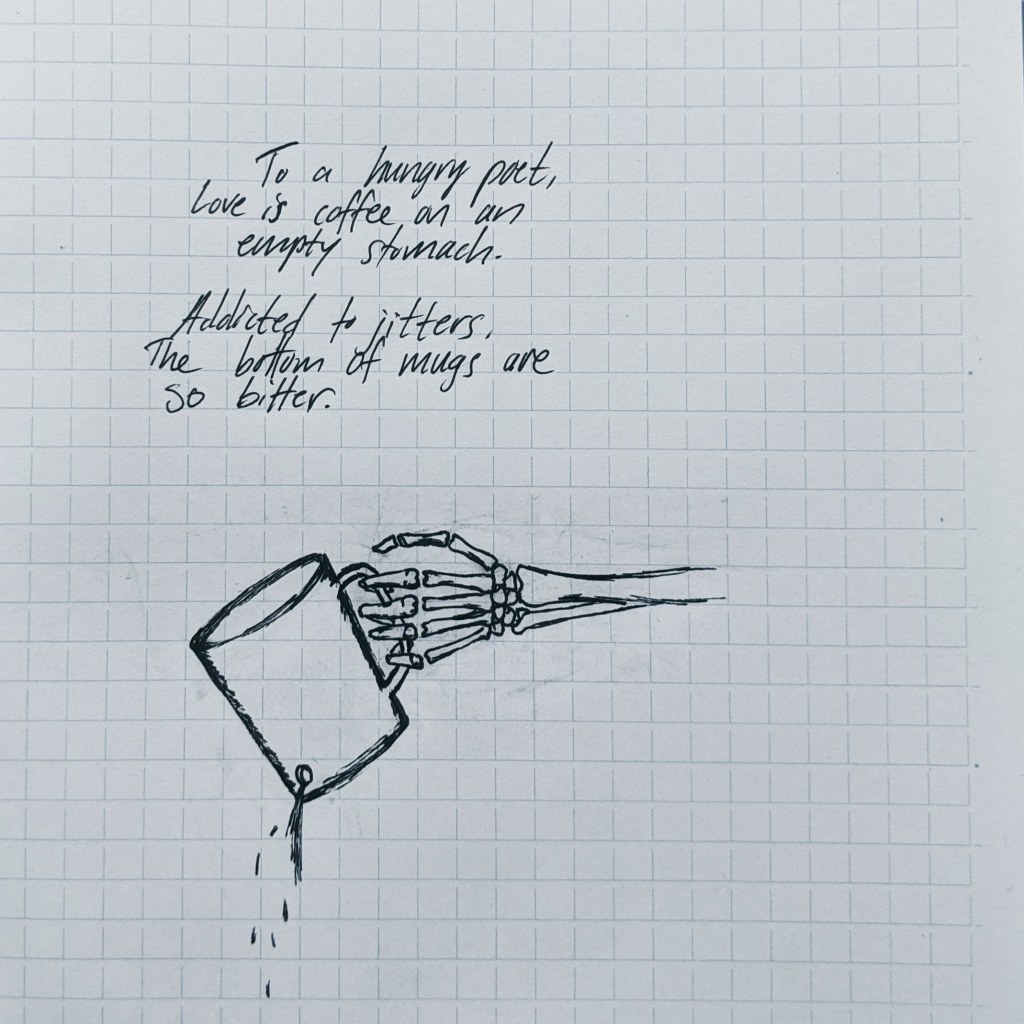 To a hungry poet,
Love is coffee on an
empty stomach.
Addicted to jitters,
The bottom of mugs are
so bitter.